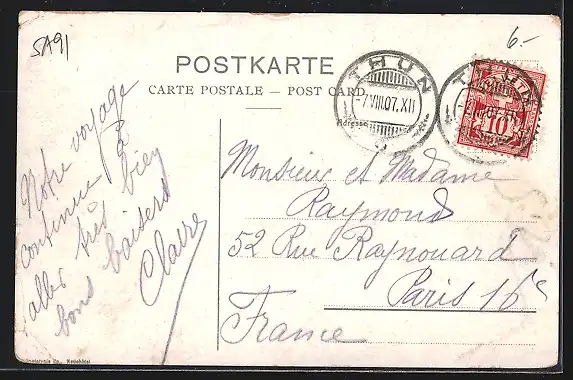 SA91
6.-
POSTKARTE
CARTE POSTALE — POST CARD
THUN
-7.VIII.07.XII
Adresse
THUN
10
Notre voyage
continue à
aller très bien
bons baisers
Claire
Monsieur et Madame
Raymond
52 Rue Raynouard
Paris 16e
France
Co., Neuchâtel